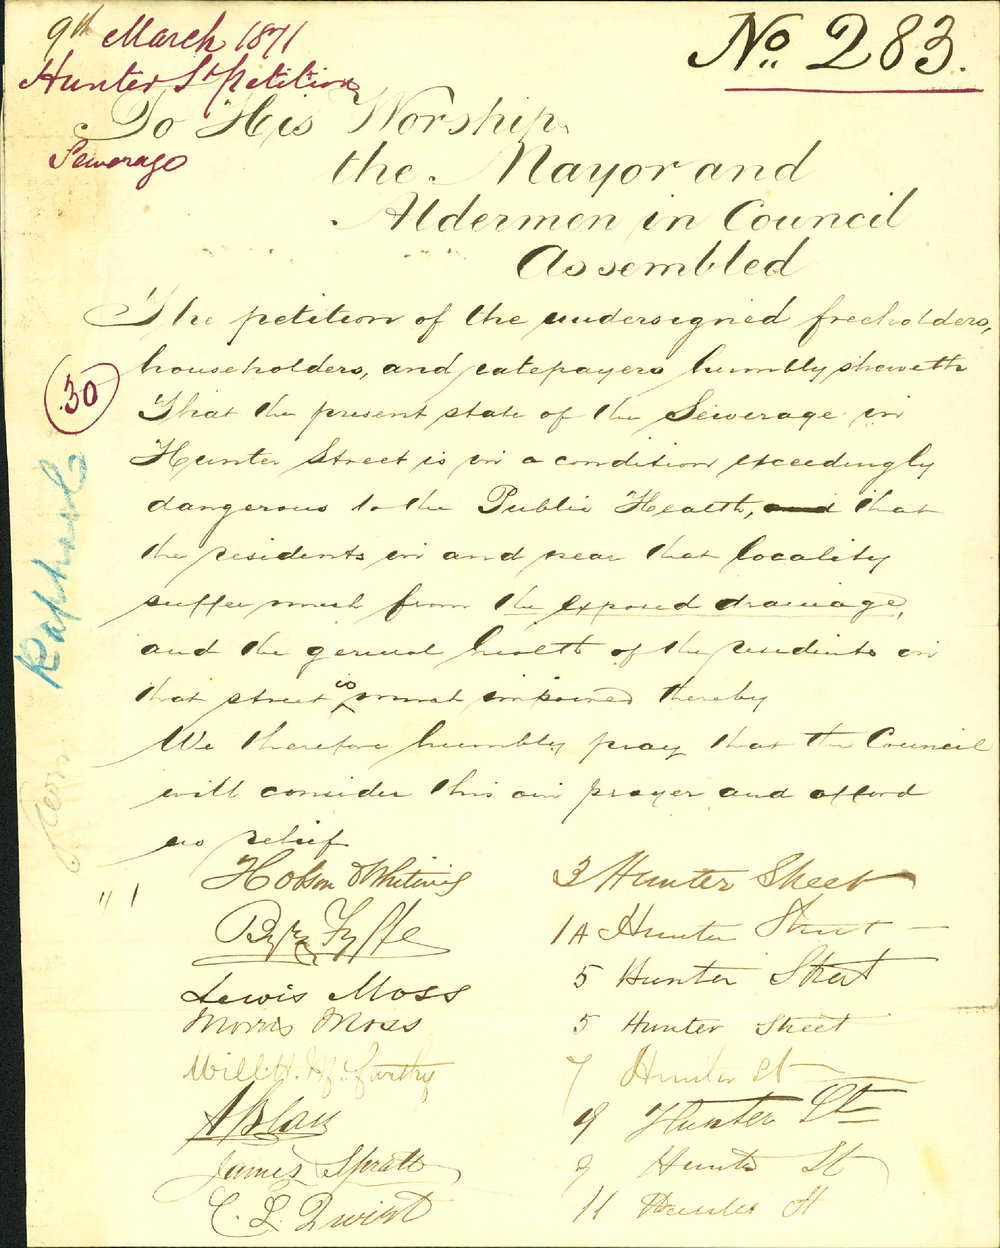 9th March 1871
No. 283.
Hunter St petition
Sewerage
To His Worship
the Mayor and
Aldermen in Council
Assembled
The petition of the undersigned freeholders,
householders, and ratepayers humbly sheweth
30
That the present state of the Sewerage in
Hunter Street is in a condition exceedingly
dangerous to the Public Health, and that
the residents in and near that locality
suffer much from the exposed drainage,
and the general health of the residents in
that street is much impaired thereby
We therefore humbly pray that the Council
will consider this our prayer and afford
us relief
Raphael
Hobson & Whiting 3 Hunter Street
Fyffe 1A Hunter Street
Lewis Moss 5 Hunter Street
Morris Moss 5 Hunter Street
Will. H. 7 Hunter St
9 Hunter St
James Spratt 9 Hunter St
C. L. 11 Hunter St